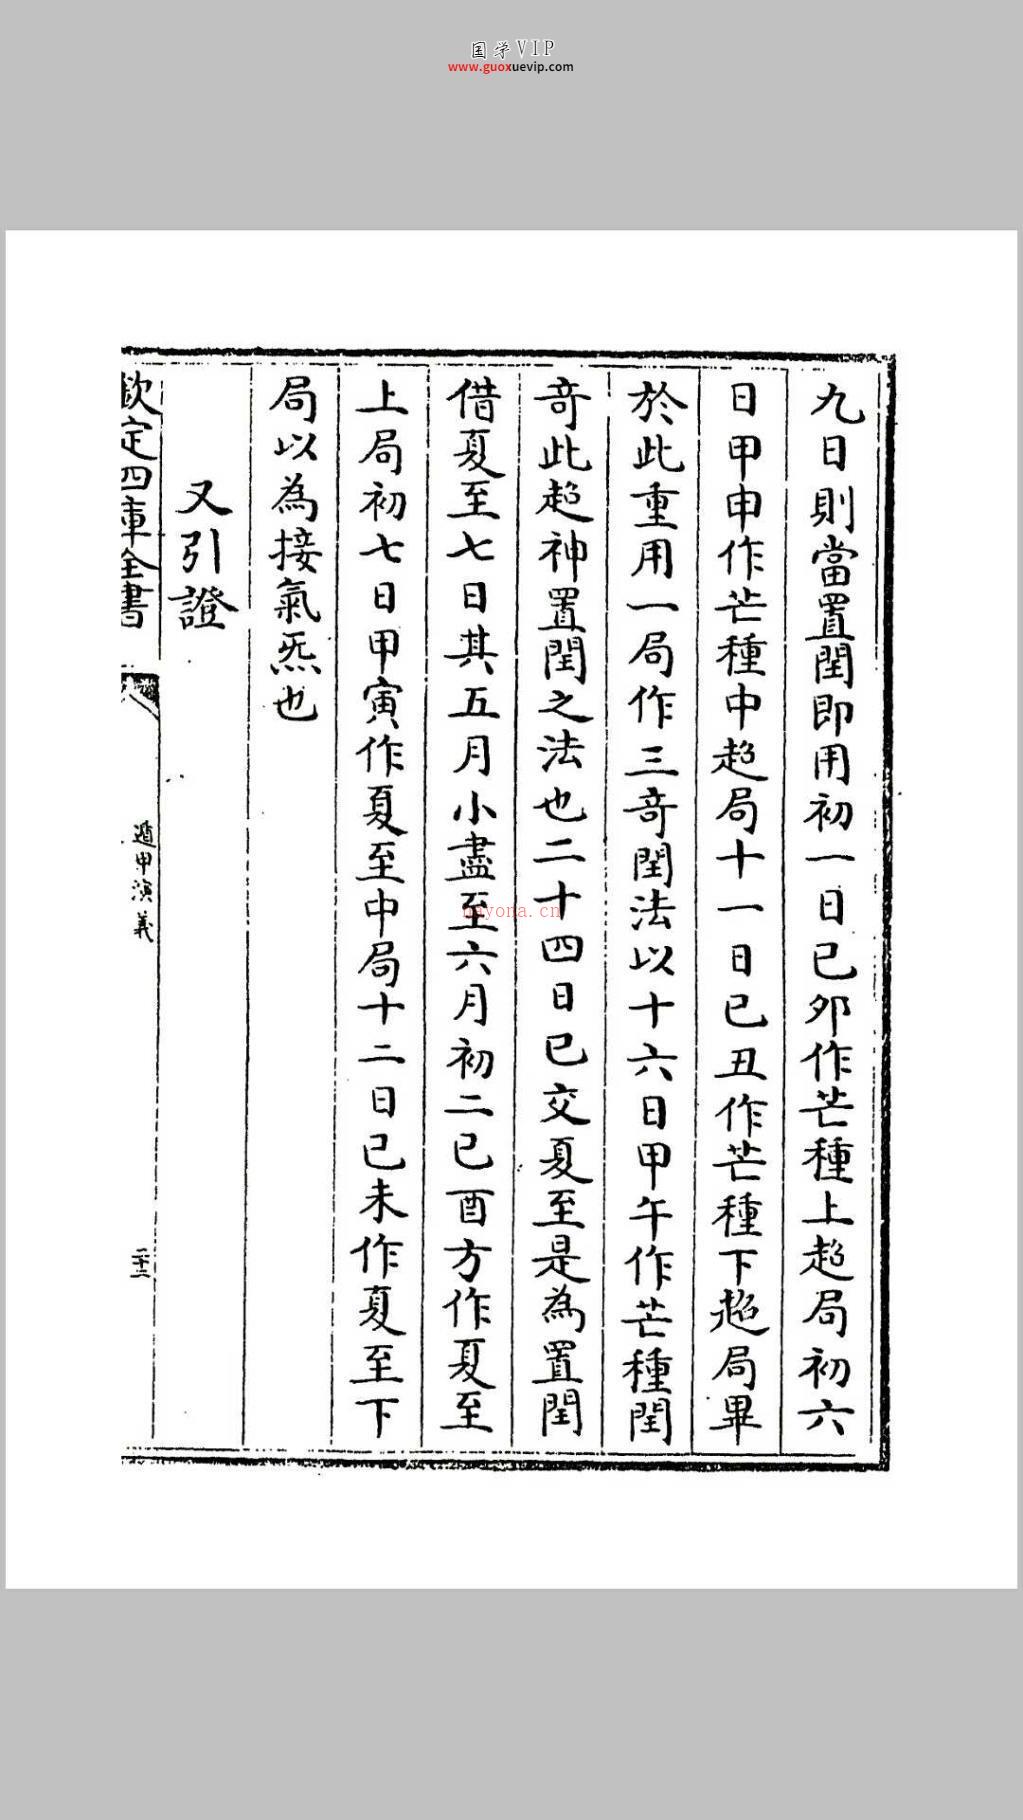 国学VIP
www.guoxuevip.com
九日則當置閏即用初一日已卯作芒種上超局初六
日甲申作芒種中超局十一日已丑作芒種下超局畢
於此重用一局作三奇閏法以十六日甲午作芒種閏
奇此超神置閏之法也二十四日已交夏至是為置閏
借夏至七日其五月小盡至六月初二已酉方作夏至
上局初七日甲寅作夏至中局十二日已未作夏至下
局以為接氣炁也
又引證
欽定四庫全書
遁甲演義
二十二
nayona.cn